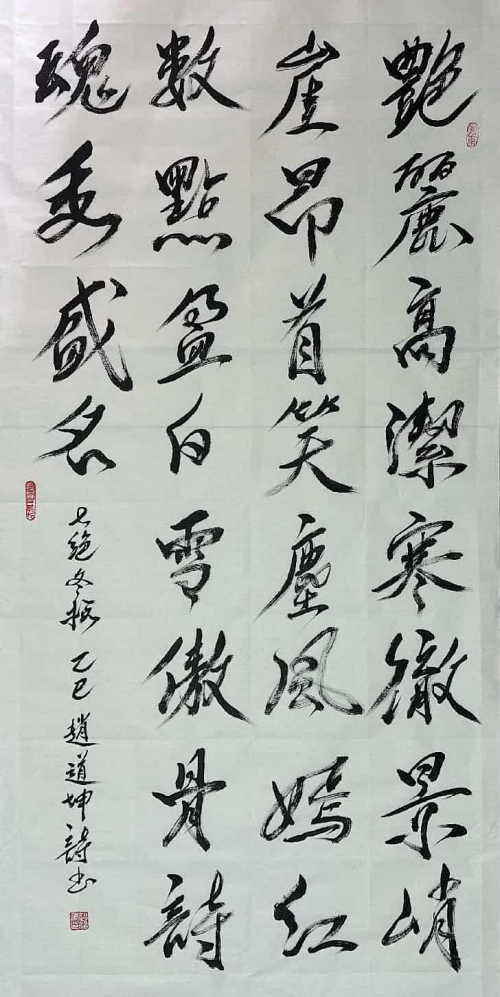 艷麗高潔寒徹景峭
崖昂首笑塵風嫣紅
數點盈白雪傲骨詩
魂秀盛名
七絕冬梅 乙巳 趙道坤詩書